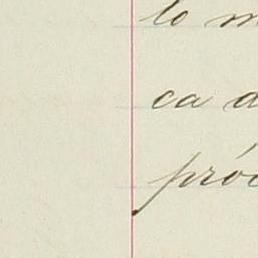 to m
ca d
próc